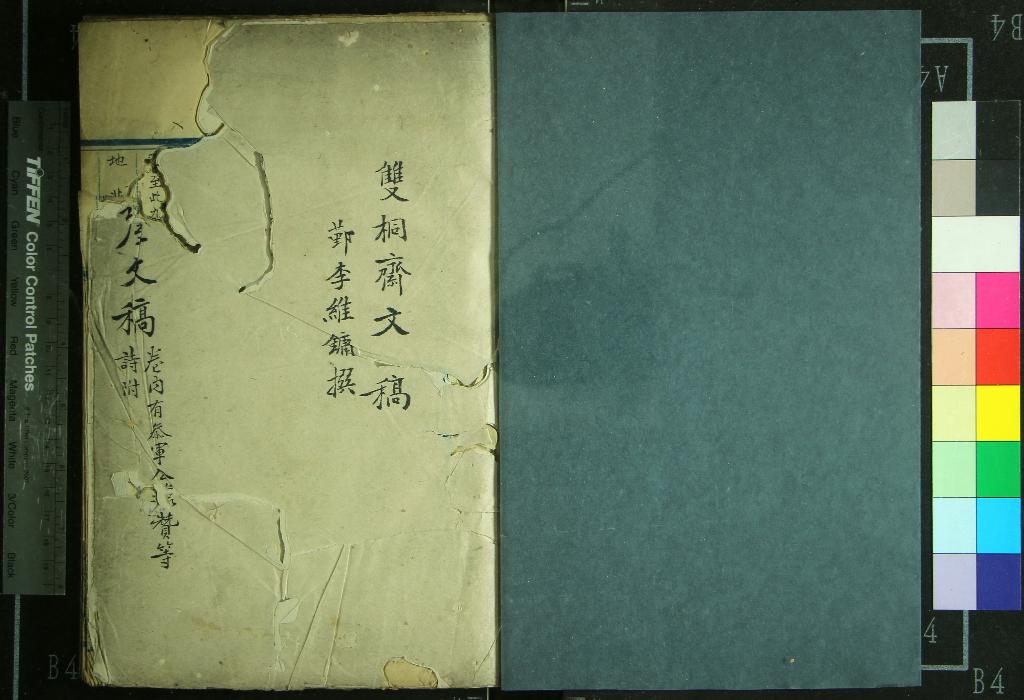 雙桐齋文稿
鄞李維鏞撰
至此
文稿
詩附
卷内有叅軍公 贊等
地
TIFFEN Color Control Patches
Blue
Cyan
Green
Yellow
Red
Magenta
White
3/Color
Black
B4
A4
4
B4
B4